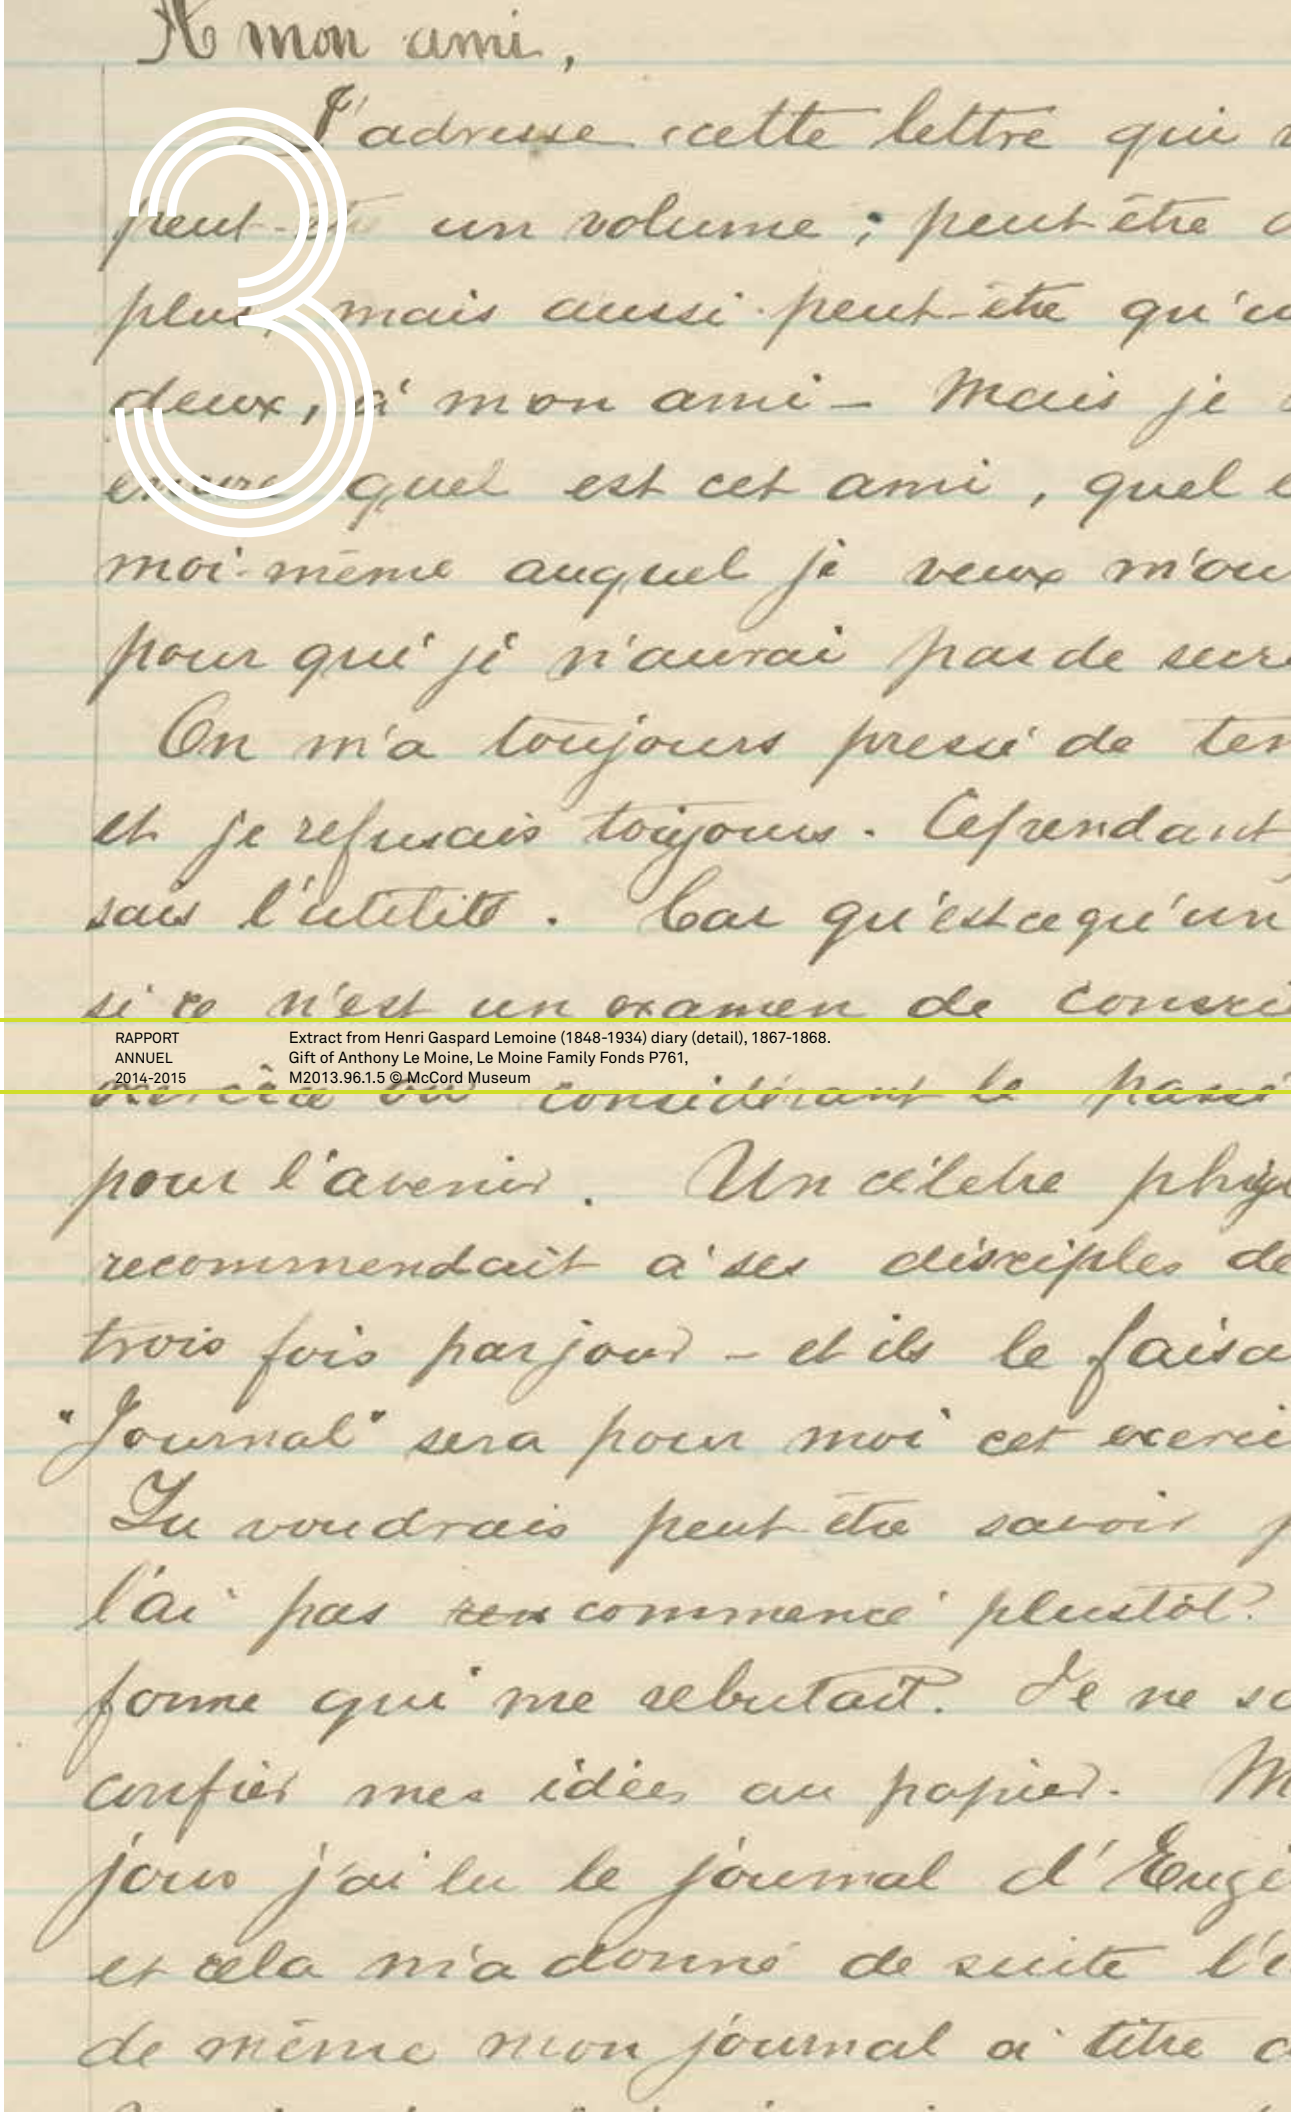 A mon ami,
J'adresse cette lettre qui
peut-être un volume ; peut être
plus, mais aussi peut-être qu'u
deux, à mon ami — Mais je
encore quel est cet ami, quel e
moi-même auquel je veux m'ou
pour qui je n'aurai pas de secre
On m'a toujours pressé de ten
et je refusais toujours. Cependant
sais l'utilité. Car qu'est ce qu'un
si ce n'est un examen de consci
3
RAPPORT
ANNUEL
2014-2015
Extract from Henri Gaspard Lemoine (1848-1934) diary (detail), 1867-1868.
Gift of Anthony Le Moine, Le Moine Family Fonds P761,
M2013.96.1.5 © McCord Museum
considérant le passé
pour l'avenir. Un célebre
recommendait à ses disciples de
trois fois par jour — et ils le faisa
"Journal" sera pour moi cet exerci
Tu voudrais peut être savoir p
l'ai pas commencé plustôt.
forme qui me rebutait. Je ne sa
confier mes idées au papier. M
jours j'ai lu le journal d'Eugé
et cela m'a donné de suite l'i
de même mon journal à titre d